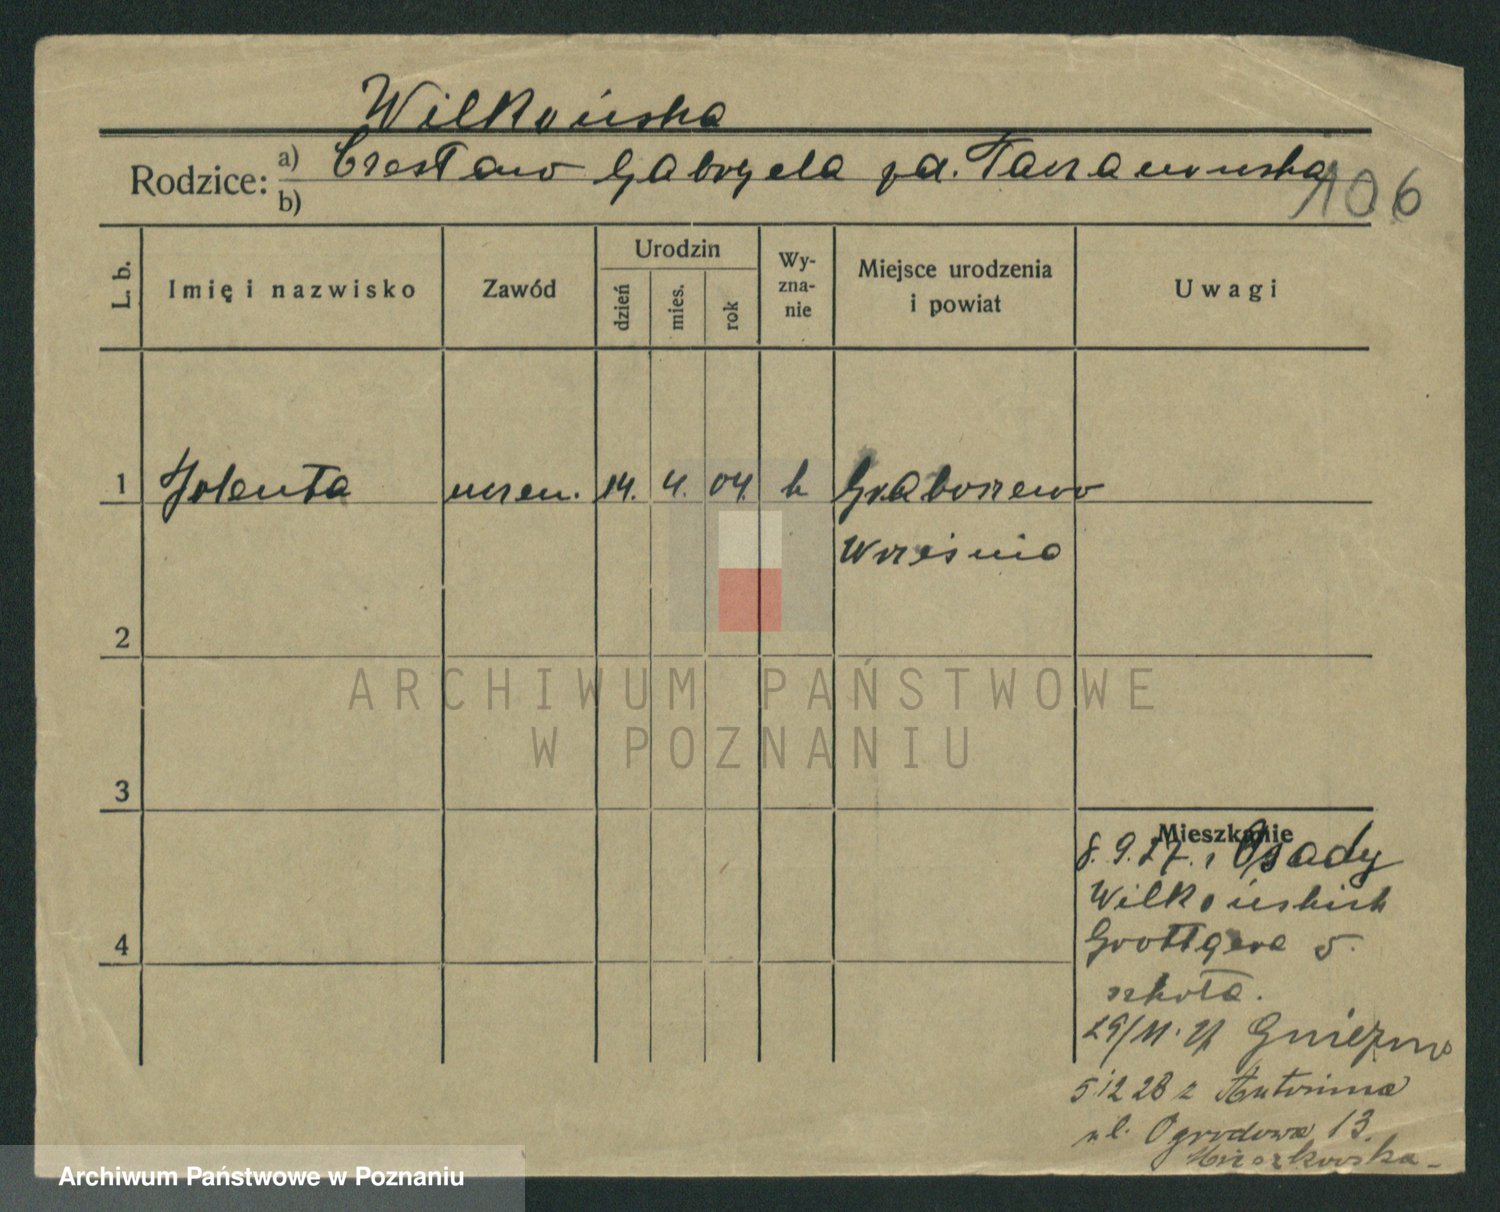 Wilkońska
Rodzice: a) Czesław Gabryela zd. Taczanowska
b)
106
L. b.
Imię i nazwisko
Zawód
Urodzin
dzień
mies.
rok
Wy-
zna-
nie
Miejsce urodzenia
i powiat
Uwagi
1 Jolenta uczen. 14. 4. 04. k Graboszewo
Września
2
3
4
Mieszkanie
8. 9. 27. z Osady
Wilkońskich
Grottgera 5.
szkoła.
29/11. 27 Gniezno
5 12 28 z Antonina
ul. Ogrodowa 13.
ARCHIWUM PAŃSTWOWE
W POZNANIU
Archiwum Państwowe w Poznaniu